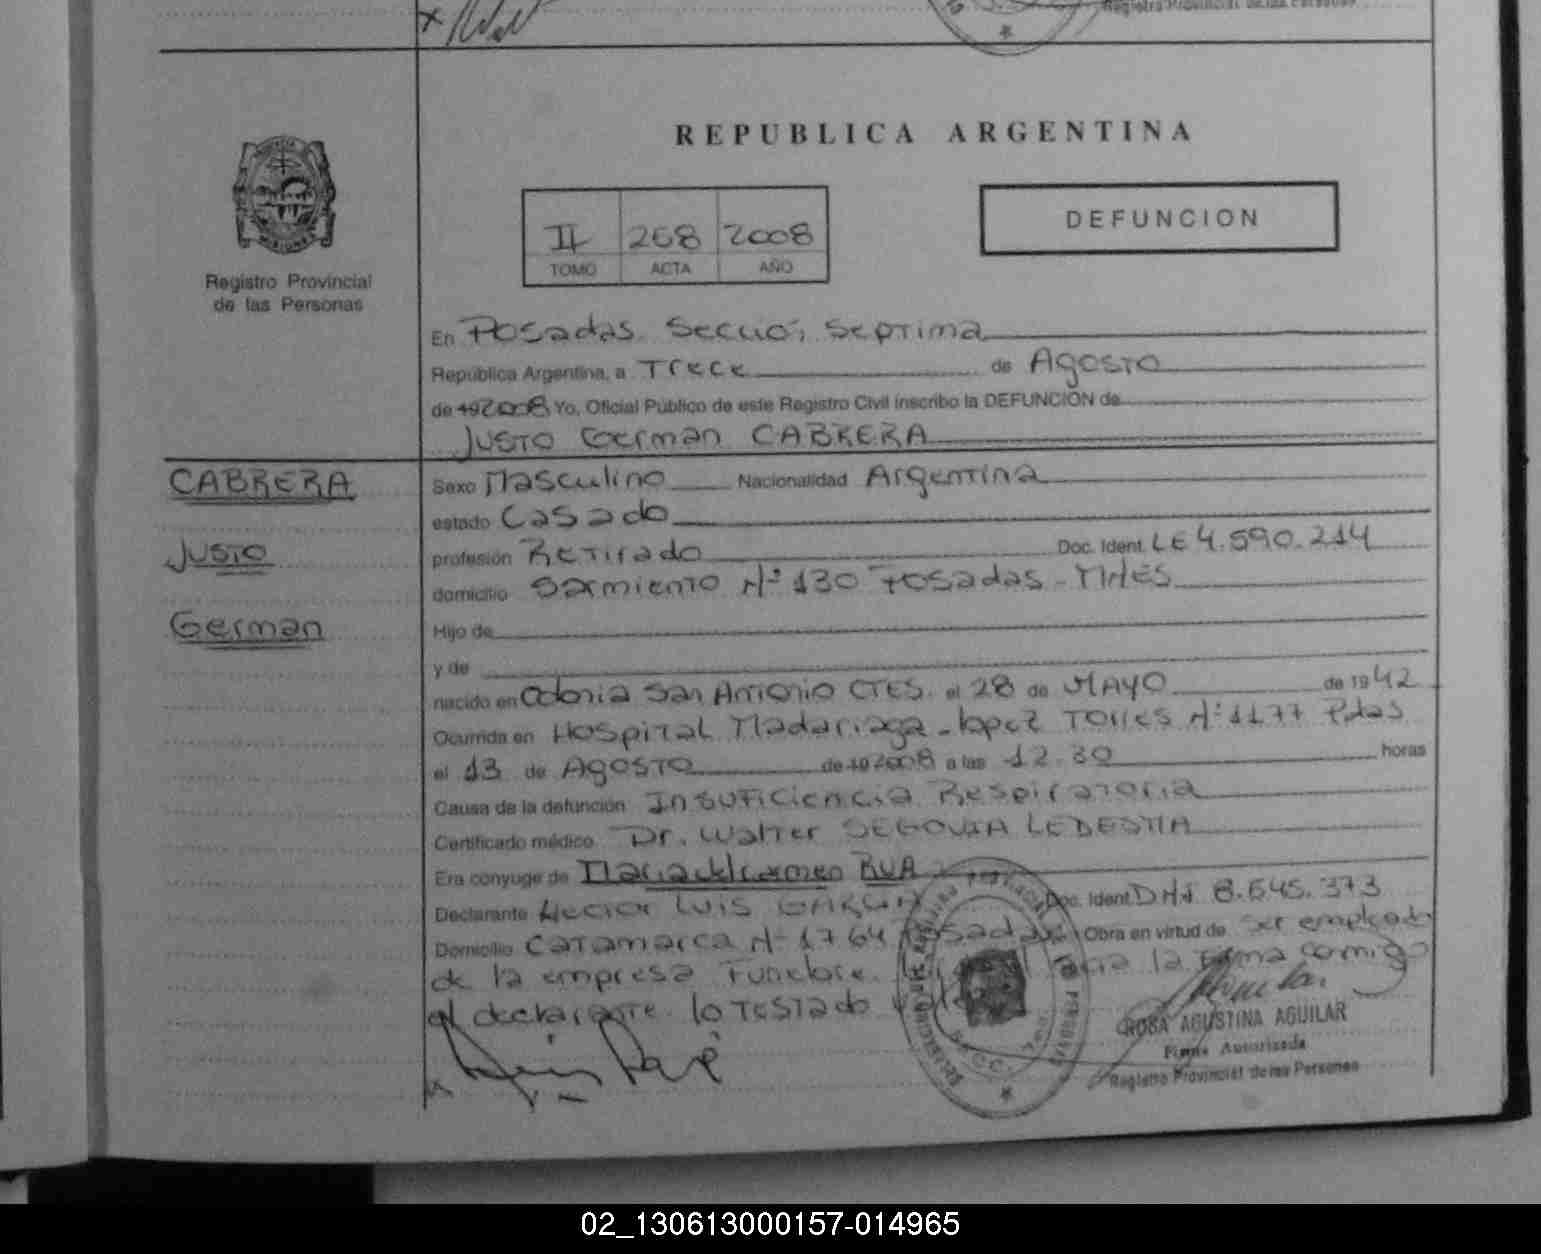 Registro Provincial de las Personas
REPUBLICA ARGENTINA
DEFUNCION
II 268 2008
TOMO ACTA AÑO
Registro Provincial
de las Personas
En Posadas. Secció, Septima
República Argentina, a Trece de Agosto
de 19 2008 Yo, Oficial Público de este Registro Civil inscribo la DEFUNCION de
Justo German CABRERA
CABRERA
Justo
German
Sexo Masculino Nacionalidad Argentina
estado Casado
profesión Retirado Doc. Ident. LE 4.590.214
domicilio Sarmiento Nº 130 Posadas - MNES
Hijo de
y de
nacido en Colonia San Antonio CTES. el 28 de MAYO de 1942
Ocurrida en Hospital Madariaga - lopez Torres Nº 1177 Pdas
el 13 de Agosto de 19 2008 a las 12.30 horas
Causa de la defunción Insuficiencia Respiratoria
Certificado médico Dr. Walter SEGOVIA LEDESMA
Era conyuge de Maria del carmen RUA
Declarante Hector Luis Doc. Ident. DNI 8.645.373
Domicilio Catamarca Nº 1764 Posadas Obra en virtud de ser empleado
de la empresa Funebre. la firma comigo
el declarante. lo TESTADO
ROSA AGUSTINA AGUILAR
Firma Autorizada
Registro Provincial de las Personas
02_130613000157-014965